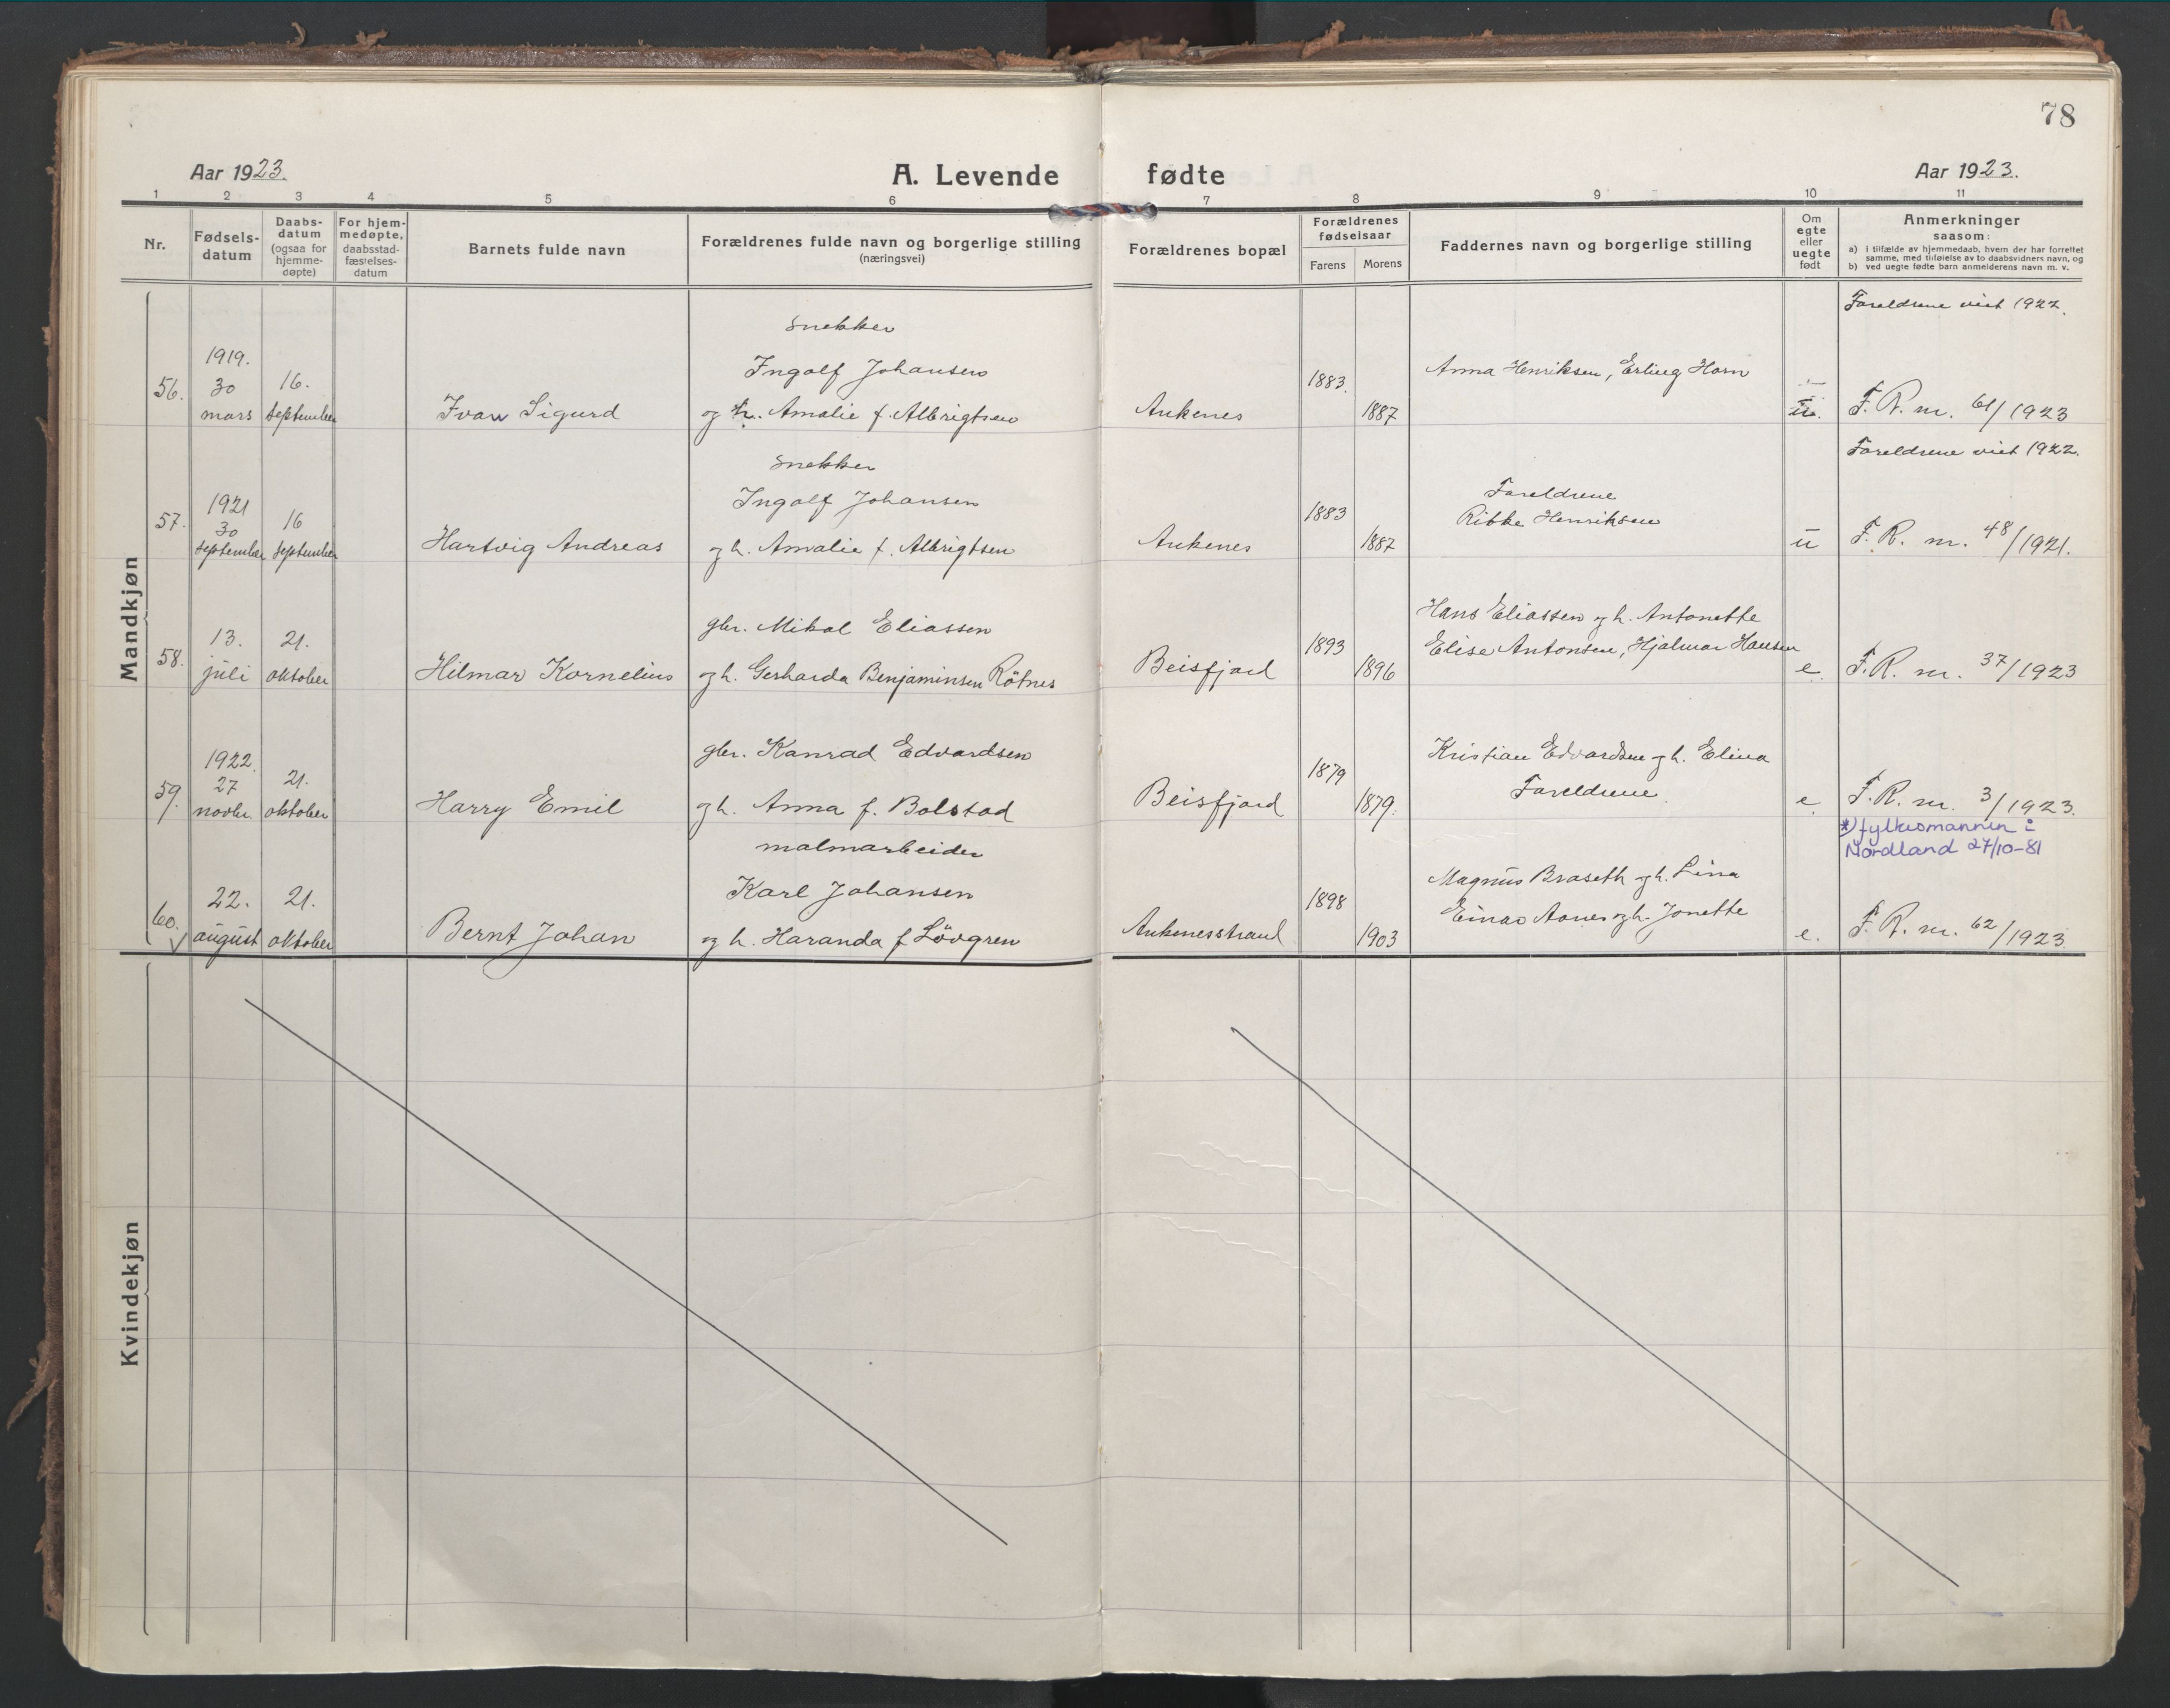 78
Aar 1923.
A. Levende fødte
Aar 1923.
1 2 3 4 5 6 7 8 9 10 11
Nr.
Fødsels-
datum
Daabs-
datum
(ogsaa for
hjemme-
døpte)
For hjem-
medøpte,
daabsstad-
fæstelses-
datum
Barnets fulde navn
Forældrenes fulde navn og borgerlige stilling
(næringsvei)
Forældrenes bopæl
Forældrenes
fødselsaar
Farens Morens
Faddernes navn og borgerlige stilling
Om
egte
eller
uegte
født
Anmerkninger
saasom:
a) i tilfælde av hjemmedaab, hvem der har forrettet
samme, med tilføielse av to daabsvidners navn, og
b) ved uegte fødte barn anmelderens navn m. v.
Mandkjøn
56.
1919.
30
mars
16.
september
Ivar Sigurd
snekker
Ingolf Johansen
og h. Amalie f. Albrigtsen
Ankenes
1883.
1887
Anna Henriksen, Erling Horn
u.
Foreldrene viet 1922.
F. R. nr. 61/1923
57.
1921
30
september
16
september
Hartvig Andreas
snekker
Ingolf Johansen
og h. Amalie f. Albrigtsen
Ankenes
1883
1887
Foreldrene
Rikke Henriksen
u
Foreldrene viet 1922.
F. R. nr. 48/1921.
58.
13.
juli
21.
oktober
Hilmar Kornelius
gbr. Mikal Eliassen
og h. Gerharda Benjaminsen Rötnes
Beisfjord
1893
1896
Hans Eliassen og h. Antonette
Elise Antonsen, Hjalmar Hansen
e.
F. R. nr. 37/1923
59.
1922.
27
novbr.
21.
oktober
Harry Emil
gbr. Konrad Edvardsen
og h. Anna f. Bolstad
Beisfjord
1879
1879.
Kristian Edvardsen og h. Elina
Foreldrene
e
F. R. nr. 3/1923.
*) fylkesmannen i
Nordland 27/10-81
60.
22.
august
21.
oktober
Bernt Johan
malmarbeider
Karl Johansen
og h. Haranda f Lövgren
Ankenesstrand
1898
1903
Magnus Braseth og h. Lina
Einar Aanes og h. Jonette
e.
F. R. nr. 62/1923.
Kvindekjøn